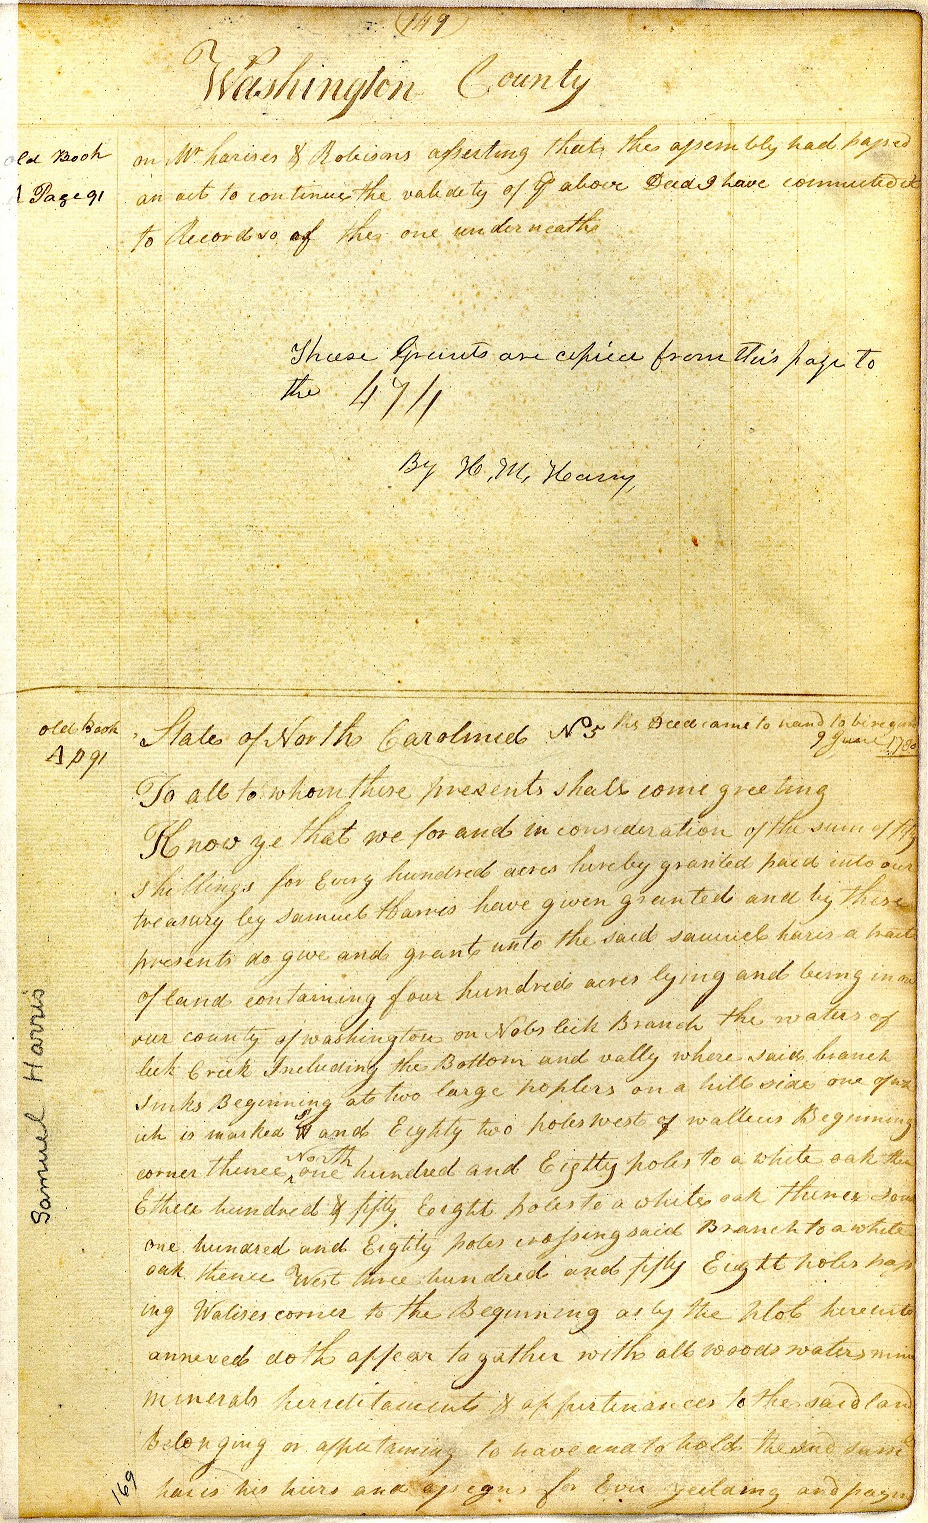 149
Washington County
old Book
A Page 91
on Mr harises & Robisons asserting that the assembly had passed
an act to continue the validety of ye above Deed I have commited it
to Record so of the one underneath
These Grants are copied from this page to
the 471
By H. M. Harry,
old Book
A p 91
State of North Carolined No 5 this Deed came to hand to be
9 June 178
To all to whom these presents shall come greeting
Know ye that we for and in consideration of the sum of fifty
shillings for Every hundred acres hereby granted paid into our
treasury by Samuel Harris have given granted and by these
presents do give and grant unto the said samuel haris a tract
of land containing four hundred acres lying and being in
our county of washington on Nobs lick Branch the waters of
lick Creek Including the Bottom and vally where said branch
sinks Beginning at two large poplers on a hill side one of
ich is marked W and Eighty two poles west of Beginning
corner thence North one hundred and Eighty poles to a white oak then
E three hundred & fifty Eight poles to a white oak thence Sou
one hundred and Eighty poles crossing said Branch to a white
oak thence West three hundred and fifty Eight poles pass
ing corner to the Beginning as by the plot hereunto
annexed doth appear to gather with all woods waters mine
minerals herreditaments & appurtenances to the said land
Belonging or appertaining to have and to hold the said
haris his heirs and assigns for Ever yeelding and
Samuel Harris
169